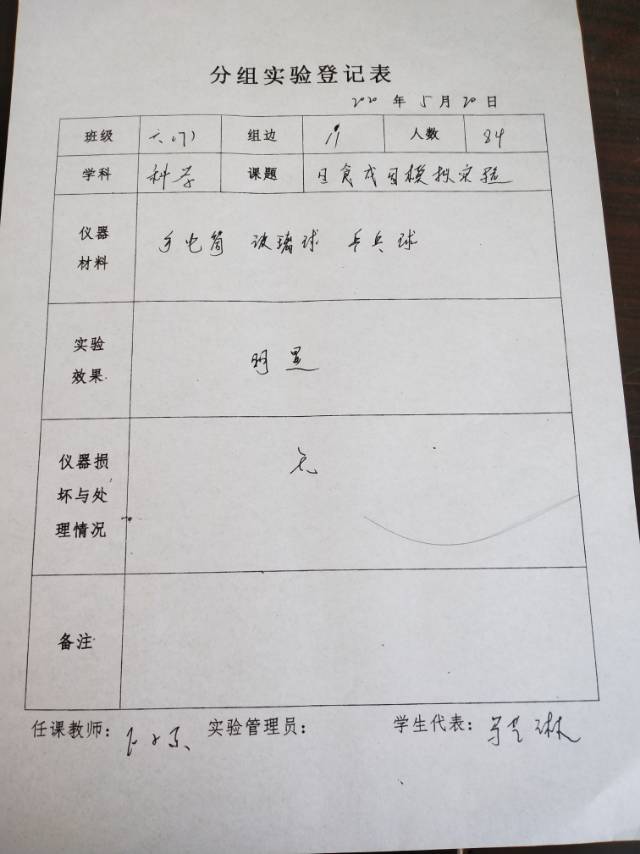 分组实验登记表
2020 年 5 月 20 日
班级 六(7) 组边 11 人数 84
学科 科学 课题 日食成因模拟实验
仪器材料 手电筒 玻璃球 乒乓球
实验效果 明显
仪器损坏与处理情况 无
备注
任课教师: 实验管理员: 学生代表: